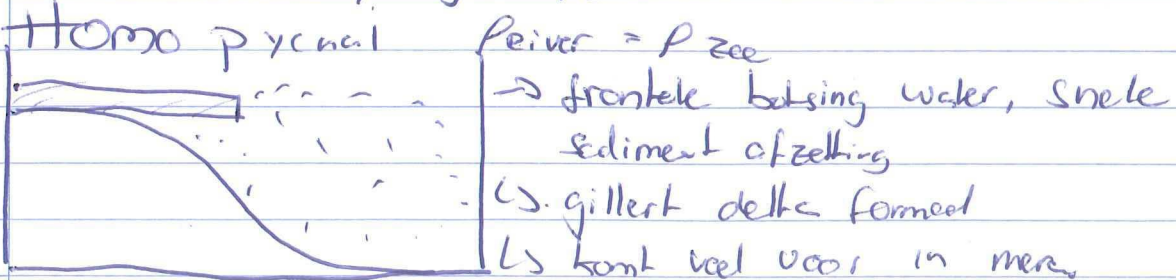 Homo pycnal
ρeiver = ρ zee
-> frontele botsing water, snele
sediment afzetting
↳ gillert delta formed
↳ komt veel voor in meren